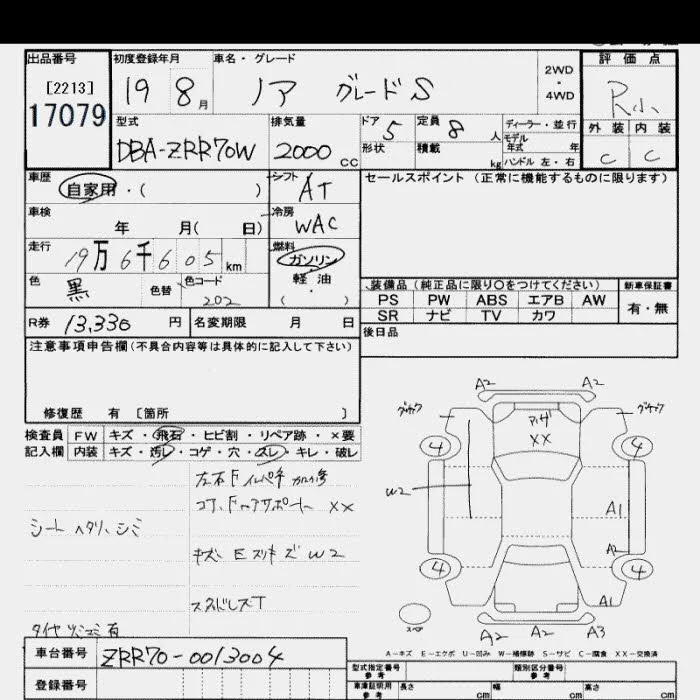 出品番号
[2213]
17079
初度登録年月
19 8月
車名・グレード
ノア グレードS
2WD
・
4WD
評価点
R小
外装 内装
C C
型式
DBA-ZRR70W
排気量
2000 cc
ドア
5
形状
定員
8 人
積載 kg
ディーラー・並行
モデル
年式 年
ハンドル 左・右
車歴
自家用・( )
シフト
AT
セールスポイント (正常に機能するものに限ります)
車検
年 月( 日)
冷房
WAC
走行
19万6千605km
燃料
ガソリン
軽・油
( )
色
黒
色替
色コード
202
装備品 (純正品に限り○をつけてください)
PS PW ABS エアB AW
SR ナビ TV カワ
新車保証書
有・無
R券 13,330 円
名変期限 月 日
後日品
注意事項申告欄(不具合内容等は具体的に記入して下さい)
修復歴 有 [箇所 ]
検査員
記入欄
FW キズ・飛石・ヒビ割・リペア跡・×要
内装 キズ・汚レ・コゲ・穴・スレ・キレ・破レ
コア、ドアサポート XX
シート ヘタリ、シミ
キズ、Eスリキズ W2
スタッドレスT
タイヤ 有
A2 A2
4 4
XX
W2
A1
A2
4 4
A1
スペア
A2 A2 A3
A−キズ E−エクボ U−凹み W−補修跡 S−サビ C−腐食 XX−交換済
車台番号
ZRR70-0013004
登録番号
型式指定番号
参考
類別区分番号
参考
車庫証明用
参考
長さ cm
幅 cm
高さ cm